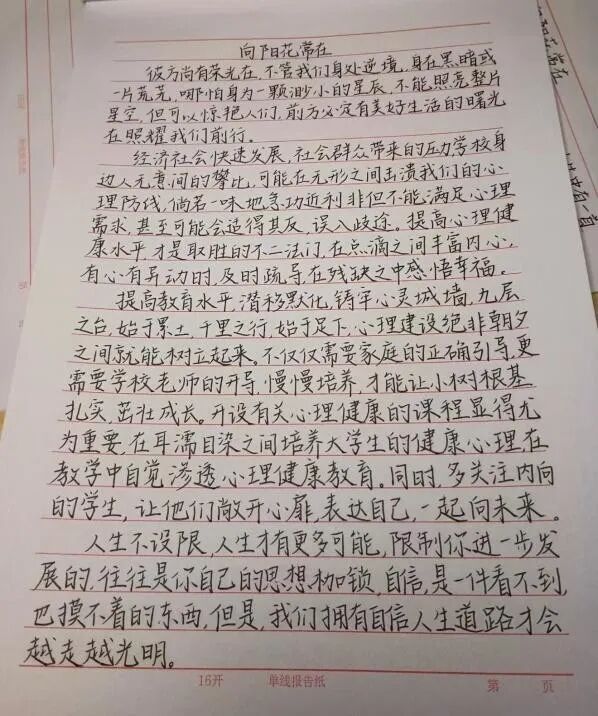 向阳花常在
彼方尚有荣光在,不管我们身处逆境,身在黑暗或
一片荒芜,哪怕身为一颗渺小的星辰,不能照亮整片
星空,但可以惊艳人们,前方必定有美好生活的曙光
在照耀我们前行。
经济社会快速发展,社会群众带来的压力学校身
边人无意间的攀比,可能在无形之间击溃我们的心
理防线,倘若一味地急功近利非但不能满足心理
需求,甚至可能会适得其反,误入歧途。提高心理健
康水平,才是取胜的不二法门,在点滴之间丰富内心,
有心有异动时,及时疏导,在残缺之中感悟幸福。
提高教育水平,潜移默化,铸牢心灵城墙,九层
之台,始于累土,千里之行,始于足下,心理建设绝非朝夕
之间就能树立起来。不仅仅需要家庭的正确引导,更
需要学校老师的开导,慢慢培养,才能让小树根基
扎实,茁壮成长。开设有关心理健康的课程显得尤
为重要,在耳濡目染之间培养大学生的健康心理,在
教学中自觉渗透心理健康教育。同时,多关注内向
的学生,让他们敞开心扉,表达自己,一起向未来。
人生不设限,人生才有更多可能,限制你进一步发
展的,往往是你自己的思想枷锁,自信,是一件看不到,
巴摸不着的东西,但是,我们拥有自信人生道路才会
越走越光明。
16开 单线报告纸 第 页